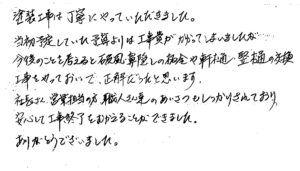 塗装工事は丁寧にやっていただきました。
当初予定していた予算よりは工事費がかかってしまいましたが
今後のことを考えると破風鼻隠しの板金や軒樋、竪樋の交換
工事をやっておいて、正解だったと思います。
社長さん、営業担当の方、職人さん達のあいさつもしっかりされており
安心して工事終了をむかえることができました。
ありがとうございました。